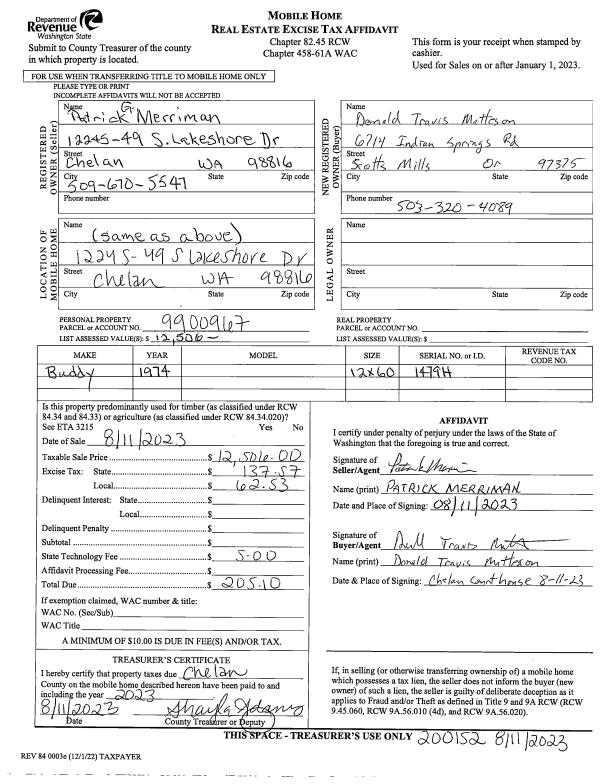 Department of
Revenue
Washington State
Submit to County Treasurer of the county
in which property is located.
MOBILE HOME
REAL ESTATE EXCISE TAX AFFIDAVIT
Chapter 82.45 RCW
Chapter 458-61A WAC
This form is your receipt when stamped by
cashier.
Used for Sales on or after January 1, 2023.
FOR USE WHEN TRANSFERRING TITLE TO MOBILE HOME ONLY
PLEASE TYPE OR PRINT
INCOMPLETE AFFIDAVITS WILL NOT BE ACCEPTED
REGISTERED
OWNER (Seller)
Name
Patrick G. Merriman
12245-49 S. Lakeshore Dr
Street
Chelan WA 98816
City State Zip code
509-670-5547
Phone number
NEW REGISTERED
OWNER (Buyer)
Name
Donald Travis Matteson
6714 Indian Springs Rd
Street
Scotts Mills Or 97375
City State Zip code
Phone number
503-320-4089
LOCATION OF
MOBILE HOME
Name
(same as above)
12245-49 S Lakeshore Dr
Street
Chelan WA 98816
City State Zip code
LEGAL OWNER
Name
Street
City State Zip code
PERSONAL PROPERTY
PARCEL or ACCOUNT NO. 9900967
LIST ASSESSED VALUE(S): $ 12,506-
REAL PROPERTY
PARCEL or ACCOUNT NO.
LIST ASSESSED VALUE(S): $
MAKE YEAR MODEL SIZE SERIAL NO. or I.D. REVENUE TAX
CODE NO.
Buddy 1974 12x60 1479H
Is this property predominantly used for timber (as classified under RCW
84.34 and 84.33) or agriculture (as classified under RCW 84.34.020)?
See ETA 3215 Yes No
Date of Sale 8/11/2023
Taxable Sale Price $ 12,506.00
Excise Tax: State $ 137.57
Local $ 62.53
Delinquent Interest: State $
Local $
Delinquent Penalty $
Subtotal $
State Technology Fee $ 5.00
Affidavit Processing Fee $
Total Due $ 205.10
If exemption claimed, WAC number & title:
WAC No. (Sec/Sub)
WAC Title
A MINIMUM OF $10.00 IS DUE IN FEE(S) AND/OR TAX.
AFFIDAVIT
I certify under penalty of perjury under the laws of the State of
Washington that the foregoing is true and correct.
Signature of
Seller/Agent
Name (print) PATRICK MERRIMAN
Date and Place of Signing: 08/11/2023
Signature of
Buyer/Agent
Name (print) Donald Travis Matteson
Date & Place of Signing: Chelan Courthouse 8-11-23
TREASURER'S CERTIFICATE
I hereby certify that property taxes due Chelan
County on the mobile home described hereon have been paid to and
including the year 2023
8/11/2023
Date County Treasurer or Deputy
If, in selling (or otherwise transferring ownership of) a mobile home
which possesses a tax lien, the seller does not inform the buyer (new
owner) of such a lien, the seller is guilty of deliberate deception as it
applies to Fraud and/or Theft as defined in Title 9 and 9A RCW (RCW
9.45.060, RCW 9A.56.010 (4d), and RCW 9A.56.020).
THIS SPACE - TREASURER'S USE ONLY 200152 8/11/2023
REV 84 0003e (12/1/22) TAXPAYER